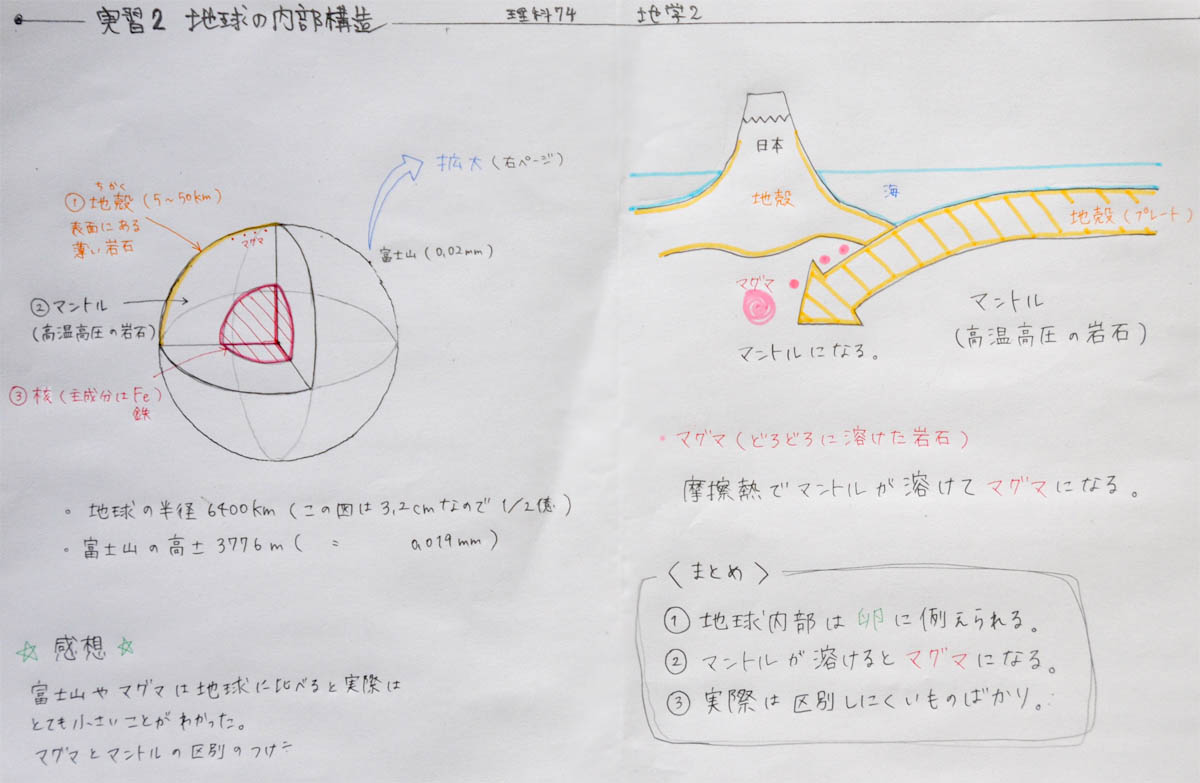 実習2 地球の内部構造
理科74 地学2
拡大(右ページ)
ちかく
①地殻(5~50km)
表面にある
薄い岩石
マグマ
富士山(0,02mm)
②マントル
(高温高圧の岩石)
③核(主成分はFe)
鉄
・地球の半径6400km(この図は3,2cmなので1/2億)
・富士山の高さ3776m( = 0,019mm)
☆感想☆
富士山やマグマは地球に比べると実際は
とても小さいことがわかった。
マグマとマントルの区別のつけ
日本
地殻
海
地殻(プレート)
マグマ
マントル
(高温高圧の岩石)
マントルになる。
・マグマ(どろどろに溶けた岩石)
摩擦熱でマントルが溶けてマグマになる。
〈まとめ〉
①地球内部は卵に例えられる。
②マントルが溶けるとマグマになる。
③実際は区別しにくいものばかり。